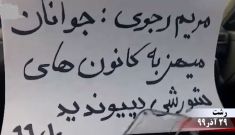 مریم رجوی : جوانان
میهن به کانون های
شورشی بپیوندید
رشت
۲۹ آذر ۹۹